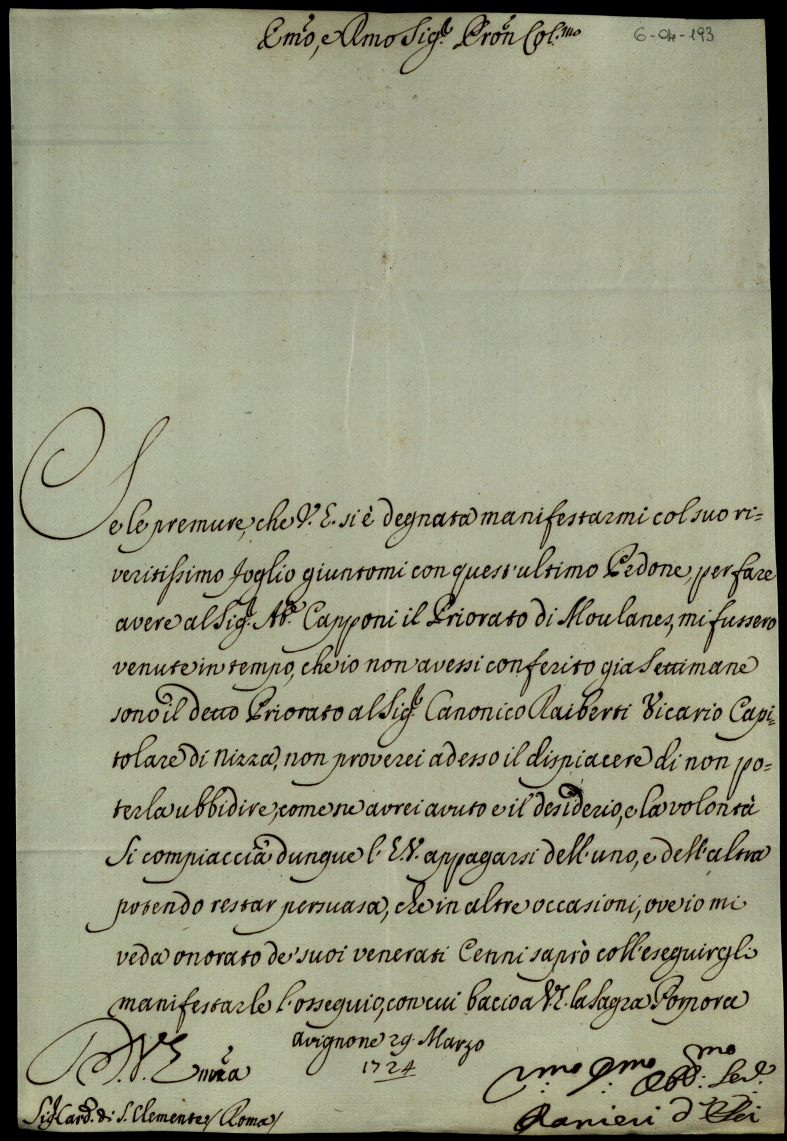 Em̃o, e Rmo Sig.r Pro͂n Col.mo
6-04-193
Se le premure, che V. E. si è degnata manifestarmi col suo ri=
veritissimo foglio giuntomi con quest'ultimo Pedone, per fare
avere al Sig.r Ab.e Capponi il Priorato di Moulanes, mi fussero
venute in tempo, che io non avessi conferito gia Settimane
sono il detto Priorato al Sig.r Canonico Raiberti Vicario Capi=
tolare di Nizza, non proverei adesso il dispiacere di non po=
terla ubbidire, come ne avrei avuto e il desiderio, e la volontà
Si compiaccia dunque l'E.V. appagarsi dell'uno, e dell'altra
potendo restar persuasa, che in altre occasioni, ove io mi
veda onorato de' suoi venerati Cenni saprò coll'eseguirgli
manifestarle l'ossequio, con cui bacio a V.E. la Sagra Porpora
Avignone 29 Marzo
1724
D. V. Em̃za
Umo Dmo Obb.mo Ser.
Sig.r Card. di S. Clemente / Roma /
Ranieri d'Elci